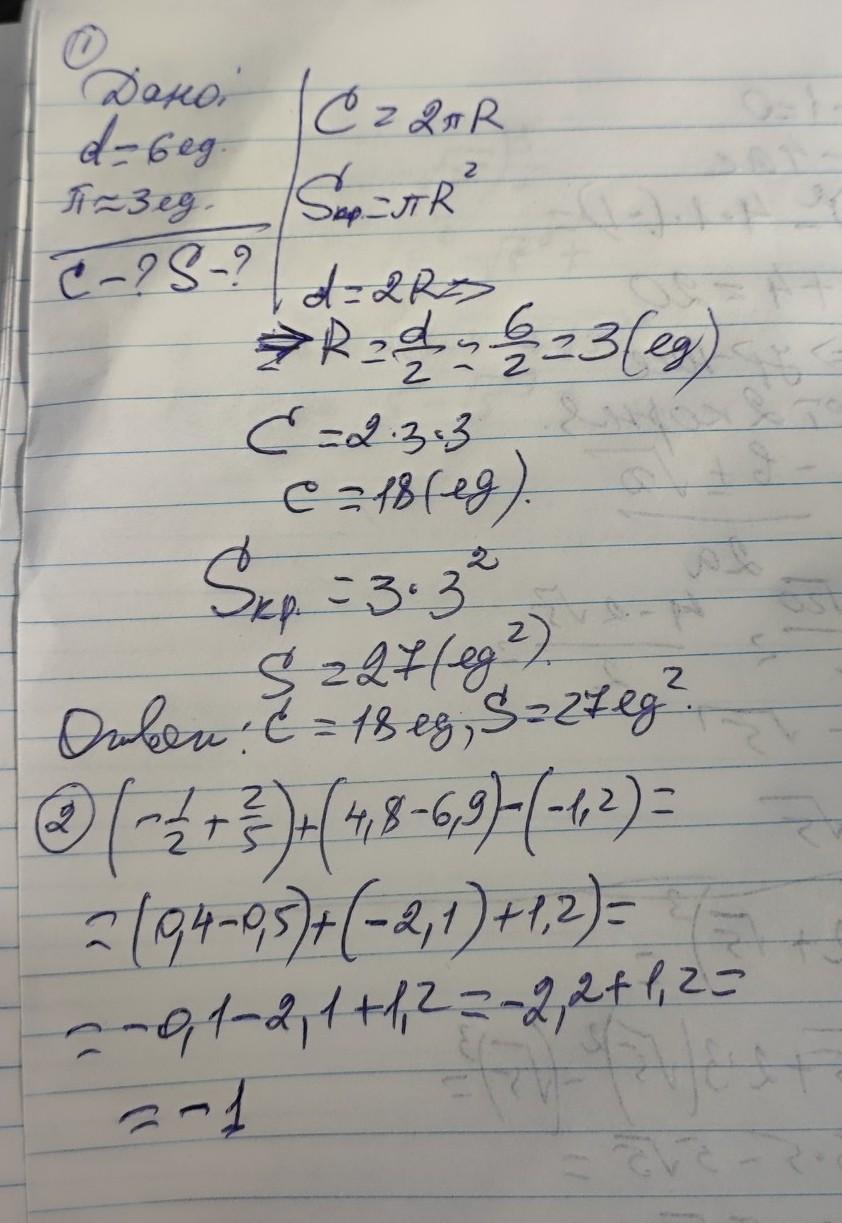 ①
Дано:
d=6ед.
π≈3ед.
C-? S-?
C = 2πR
Sкр.=πR²
d=2R=>
=> R = d/2 = 6/2 = 3(ед)
C = 2·3·3
C = 18(ед).
Sкр. = 3·3²
S = 27(ед²).
Ответ: C = 18 ед, S = 27 ед².
② (-1/2 + 2/5) + (4,8-6,9) - (-1,2) =
= (0,4-0,5)+(-2,1)+1,2) =
= -0,1-2,1+1,2 = -2,2+1,2 =
= -1